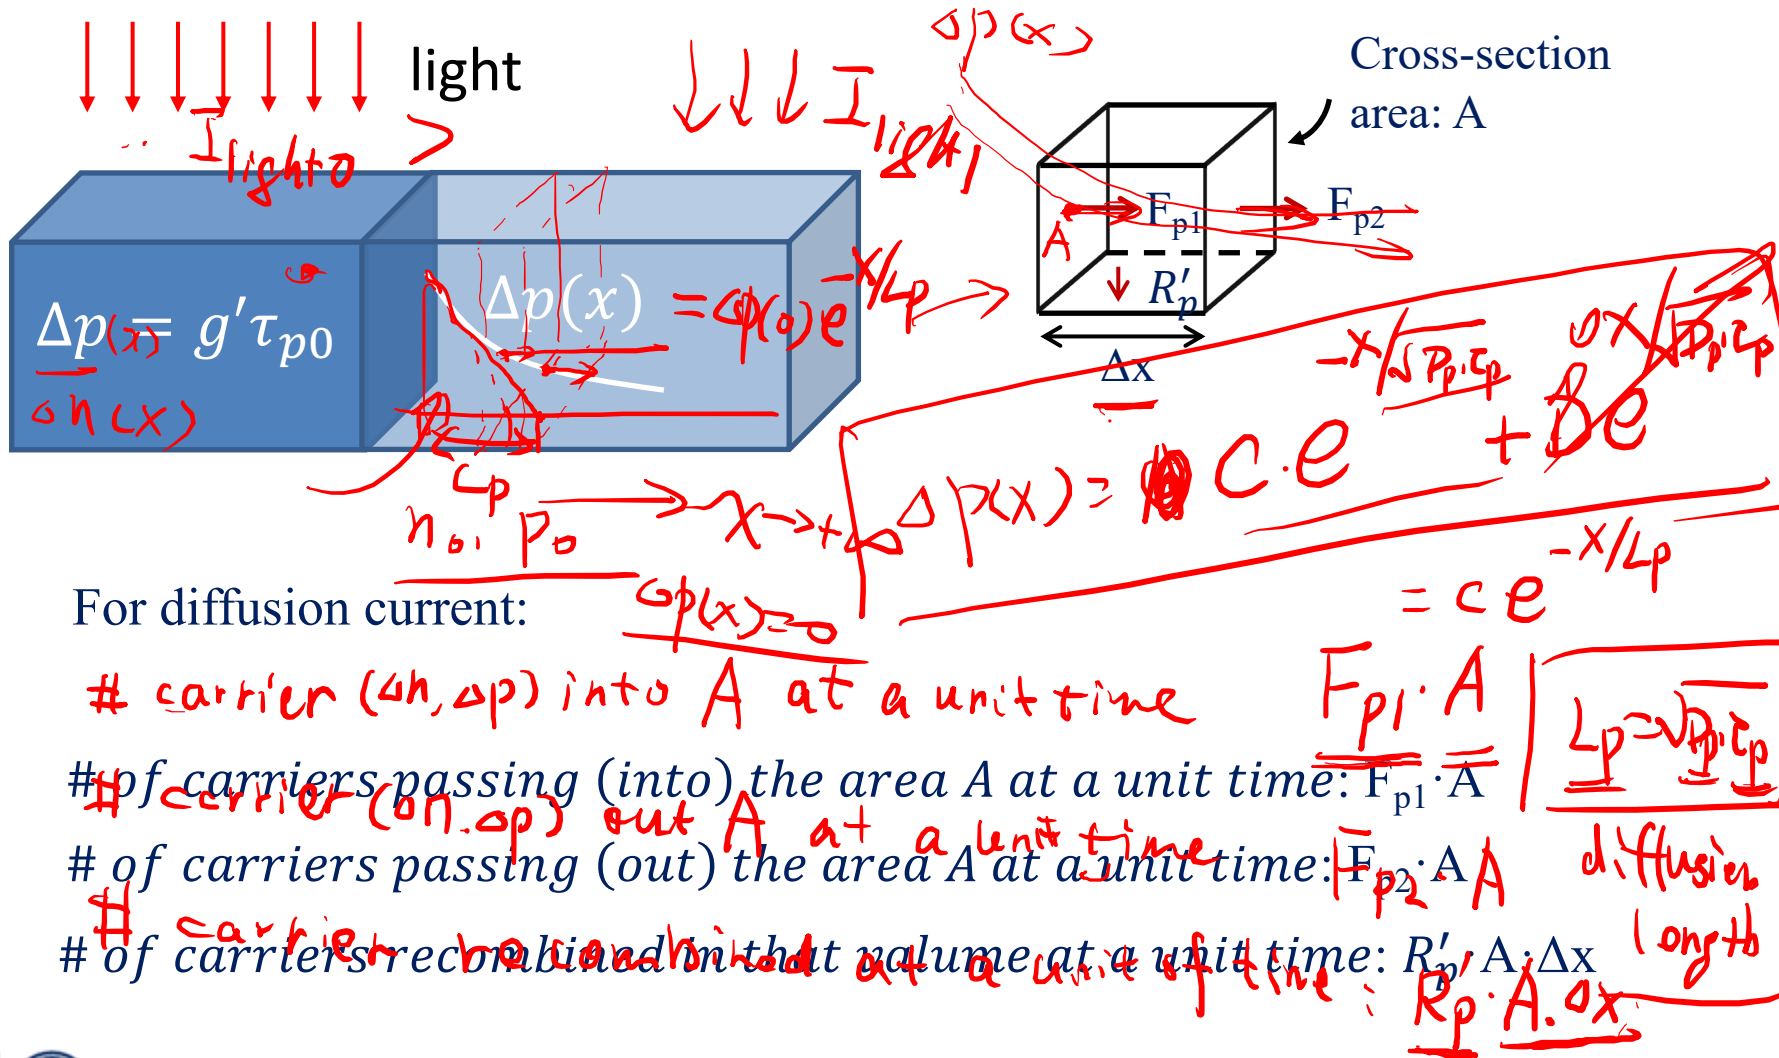 light
I_light0 >
I_light1
Δp(x)
Cross-section
area: A
F_p1
F_p2
A
R′_p
Δx
Δp(x) = g′τ_p0
Δn(x)
Δp(x) = Δp(0)e^{-x/Lp}
L_p
n_0, p_0
x → +∞
Δp(x)=0
Δp(x) = C·e^{-x/√(Dp·τp)} + Be^{x/√(Dp·τp)}
= C e^{-x/Lp}
For diffusion current:
# carrier (Δn, Δp) into A at a unit time F_p1·A
L_p=√(Dp·τp)
diffusion
length
# of carriers passing (into) the area A at a unit time: F_p1·A
# carrier (Δn.Δp) out A at a unit time F_p2·A
# of carriers passing (out) the area A at a unit time: F_p2·A
# carrier recombined at a unit of time : R_p′·A.Δx
# of carriers recombined in that valume at a unit time: R′_p·A·Δx